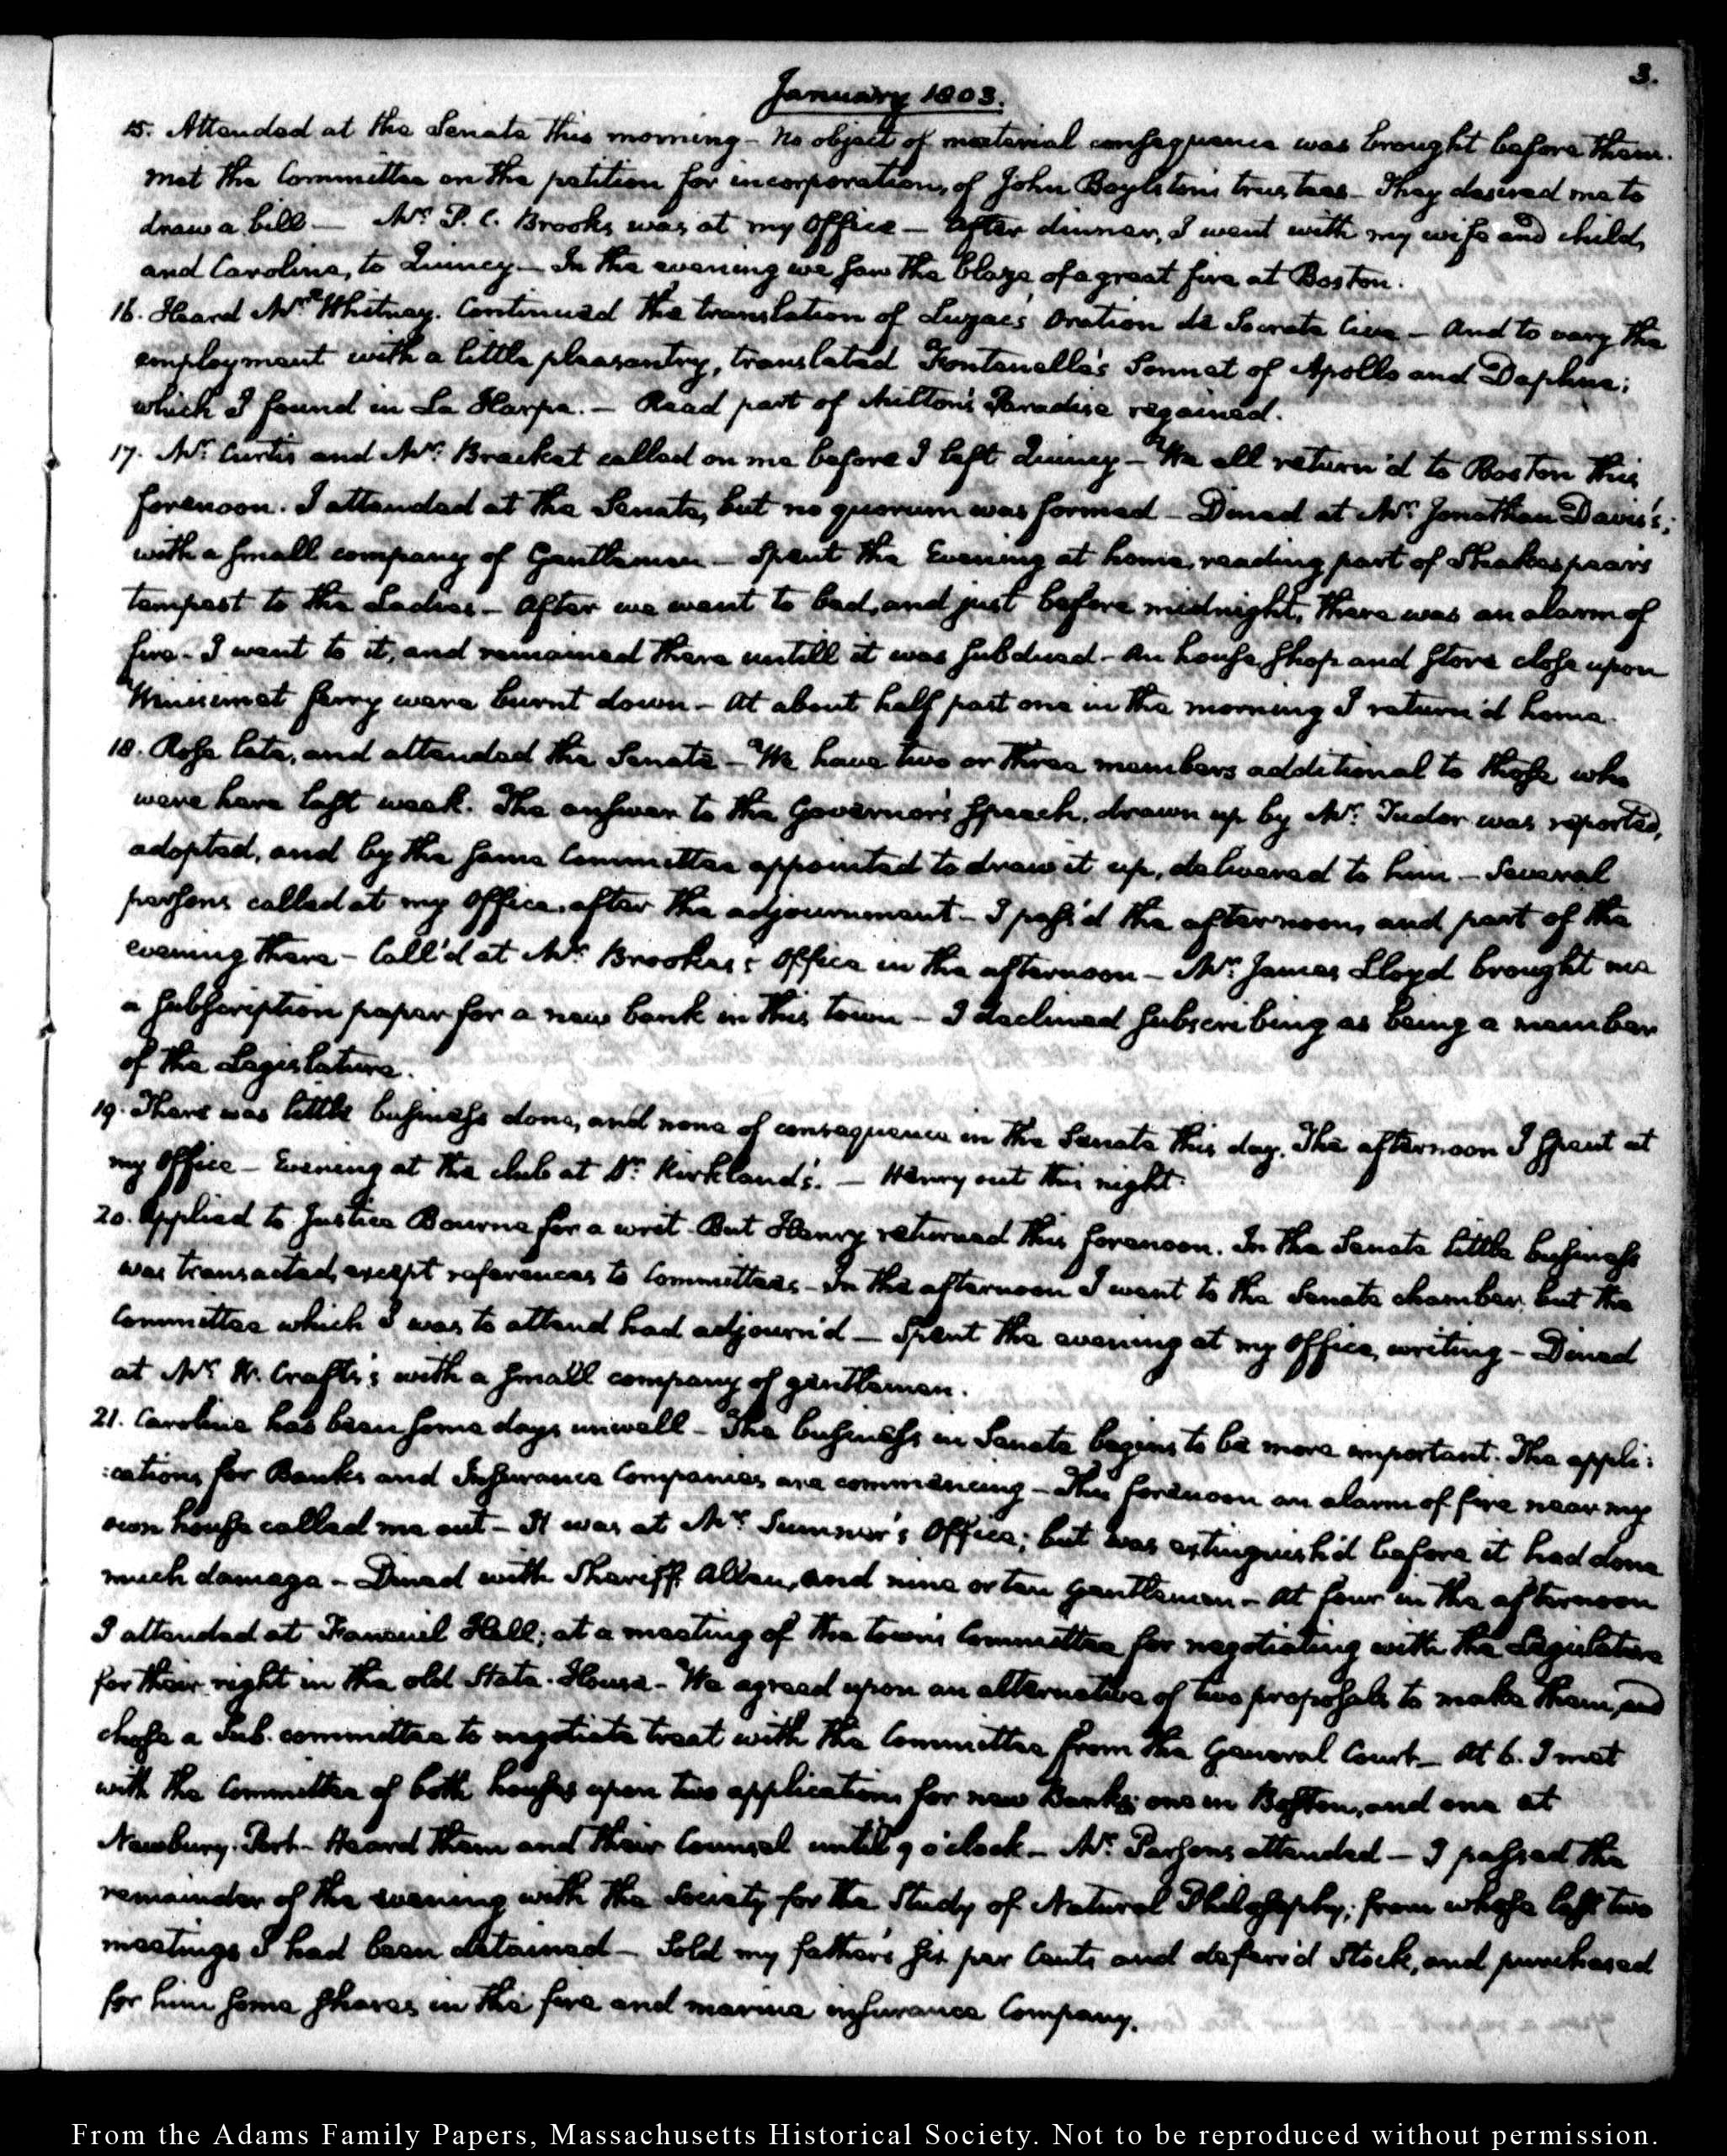 3.
January 1803.
15. Attended at the Senate this morning - No object of material consequence was brought before them.
met the Committee on the petition for incorporation, of John Boylston's trustees - They desired me to
draw a bill — Mr. P. C. Brooks was at my Office — After dinner, I went with my wife and child,
and Caroline, to Quincy — In the evening we saw the blaze of a great fire at Boston.
16. Heard Mr. Whitney. Continued the translation of Luzac's Oration de Socrate Cive — And to vary the
employment with a little pleasantry, translated Fontenelle's Sonnet of Apollo and Daphne;
which I found in La Harpe. — Read part of Milton's Paradise regained.
17. Mr. Curtis and Mr. Bracket called on me before I left Quincy — We all return'd to Boston this
forenoon. I attended at the Senate, but no quorum was formed — Dined at Mr. Jonathan Davis's;
with a small company of Gentlemen — Spent the Evening at home, reading part of Shakespear's
tempest to the Ladies — After we went to bed, and just before midnight, there was an alarm of
fire - I went to it, and remained there untill it was subdued - An house, shop and store close upon
Winnisimet ferry were burnt down - At about half past one in the morning I return'd home.
18. Rose late, and attended the Senate — We have two or three members additional to those who
were here last week. The answer to the Governor's speech, drawn up by Mr. Tudor was reported,
adopted, and by the same Committee appointed to draw it up, delivered to him — Several
persons called at my Office, after the adjournment - I pass'd the afternoon, and part of the
evening there - Call'd at Mr. Brooks's Office in the afternoon — Mr. James Lloyd brought me
a subscription paper for a new bank in this town — I declined subscribing as being a member
of the Legislature.
19. There was little business done, and none of consequence in the Senate this day. The afternoon I spent at
my Office — Evening at the club at Dr. Kirkland's. — Henry out this night.
20. Applied to Justice Bourne for a writ. But Henry returned this forenoon. In the Senate little business
was transacted, except references to Committees - In the afternoon I went to the Senate chamber, but the
Committee which I was to attend had adjourn'd — Spent the evening at my Office, writing - Dined
at Mr. W. Crafts's with a small company of gentlemen.
21. Caroline has been some days unwell - The business in Senate begins to be more important. The appli:
:cations for Banks and Insurance Companies are commencing - This forenoon an alarm of fire near my
own house called me out - It was at Mr. Sumner's Office; but was extinguish'd before it had done
much damage - Dined with Sheriff Allen, and nine or ten Gentlemen - At four in the afternoon
I attended at Faneuil Hall; at a meeting of the town's Committee for negotiating with the Legislature
for their right in the old State-House - We agreed upon an alternative of two proposals to make them, and
chose a Sub-committee to negotiate treat with the Committee from the General Court — At 6. I met
with the Committee of both houses upon two applications for new Banks; one in Boston, and one at
Newbury-Port - Heard them and their Counsel until 9 o'clock — Mr. Parsons attended — I passed the
remainder of the evening with the Society for the Study of Natural Philosophy; from whose last two
meetings I had been detained — Sold my father's six per Cents and deferr'd Stock, and purchased
for him some shares in the fire and marine insurance Company.
From the Adams Family Papers, Massachusetts Historical Society. Not to be reproduced without permission.